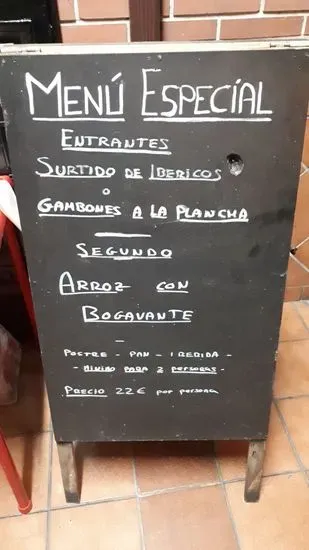 MENÚ ESPECIAL
ENTRANTES
SURTIDO DE IBERICOS
O
GAMBONES A LA PLANCHA
SEGUNDO
ARROZ CON
BOGAVANTE
POSTRE - PAN - 1 BEBIDA -
- MINIMO PARA 2 PERSONAS -
PRECIO 22€ por persona